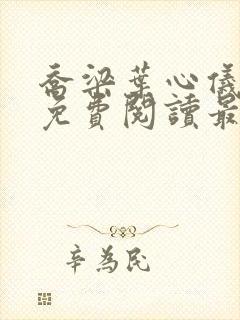 喬梁葉心儀
免費閱讀最
辛為民